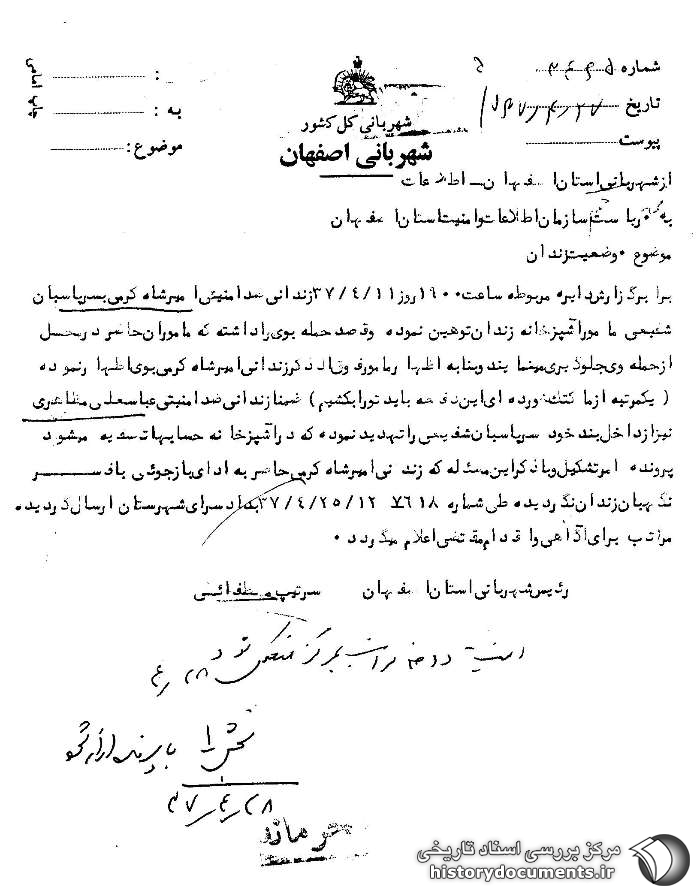 شماره ۲۴۶۵
تاریخ ۱۳۵۷٫۴٫۲۷
پیوست
شهربانی کل کشور
شهربانی اصفهان
:
به :
موضوع :
چاپ امامی
از شهربانی استان اصفهان – اطلاعات
به ریاست سازمان اطلاعات و امنیت استان اصفهان
موضوع . وضعیت زندان
برابر گزارش دایره مربوطه ساعت ۱۹۰۰ روز ۳۷/۴/۱۱ زندانی ضد امنیتی امیرشاه کرمی بسرپاسبان
شفیعی مامور آشپزخانه زندان توهین نموده و قصد حمله بوی را داشته که ماموران حاضر در محل
از حمله وی جلوگیری مینمایند و بنا به اظهار مامور فوق الذکر زندانی امیرشاه کرمی بوی اظهار نموده
( یکمرتبه از ما کتک خورده ای این دفعه باید تو را بکشیم ) ضمنا زندانی ضد امنیتی عباسعلی مظاهری
نیز از داخل بند خود سرپاسبان شفیعی را تهدید نموده که در آشپزخانه حسابها تسویه میشود
پرونده امر تشکیل و با ذکر این مسئله که زندانی امیرشاه کرمی حاضر به ادای بازجوئی با افسر
نگهبان زندان نگردیده طی شماره ۷۶۱۸ ۳۷/۴/۲۵/۱۲ بدادسرای شهرستان ارسال گردیده
مراتب برای آگاهی و اقدام مقتضی اعلام میگردد .
رئیس شهربانی استان اصفهان سرتیپ مصطفائی
مراتب بمرکز منعکس شود ۲۸٫۴
بخش ۱
۳۷٫۴٫۲۸
مرکز بررسی اسناد تاریخی
historydocuments.ir